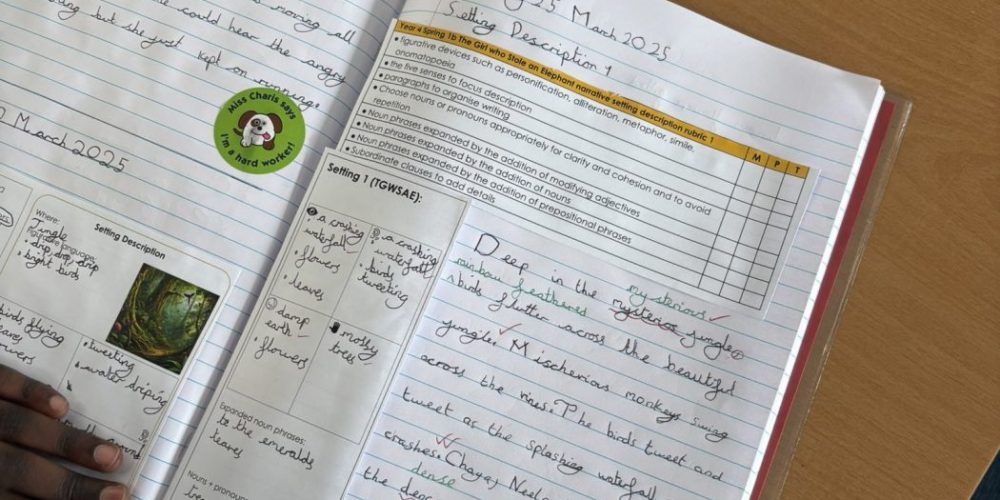 moving all
could hear the angry
but she just kept on running
Miss Charis says
I'm a hard worker!
March 2025
Where:
Jungle
language:
• drip, drip, drip
• bright birds
Setting Description
birds flying
• tweeting
• water driping
25 March 2025
Setting Description 1
Year 4 Spring 1b The Girl who Stole an Elephant narrative setting description rubric 1
M P T
• figurative devices such as personification, alliteration, metaphor, simile, onomatopoeia
• the five senses to focus description
• paragraphs to organise writing
• Choose nouns or pronouns appropriately for clarity and cohesion and to avoid repetition
• Noun phrases expanded by the addition of modifying adjectives
• Noun phrases expanded by the addition of nouns
• Noun phrases expanded by the addition of prepositional phrases
• Subordinate clauses to add details
Setting 1 (TGWSAE):
• a crashing waterfall
• flowers
• leaves
• a crashing waterfall
• birds tweeting
• damp earth
• flowers
• mossy trees
Expanded noun phrases:
to the emeralds
leaves
Nouns + pronouns
mysterious
Deep in the mysterios jungle,
rainbow feathered
birds flutter across the beautiful
jungle. Mischerious monkeys swing
across the vines. The birds tweet and
tweet as the splashing waterfall
crashes. Chaya, Neel
dense
the